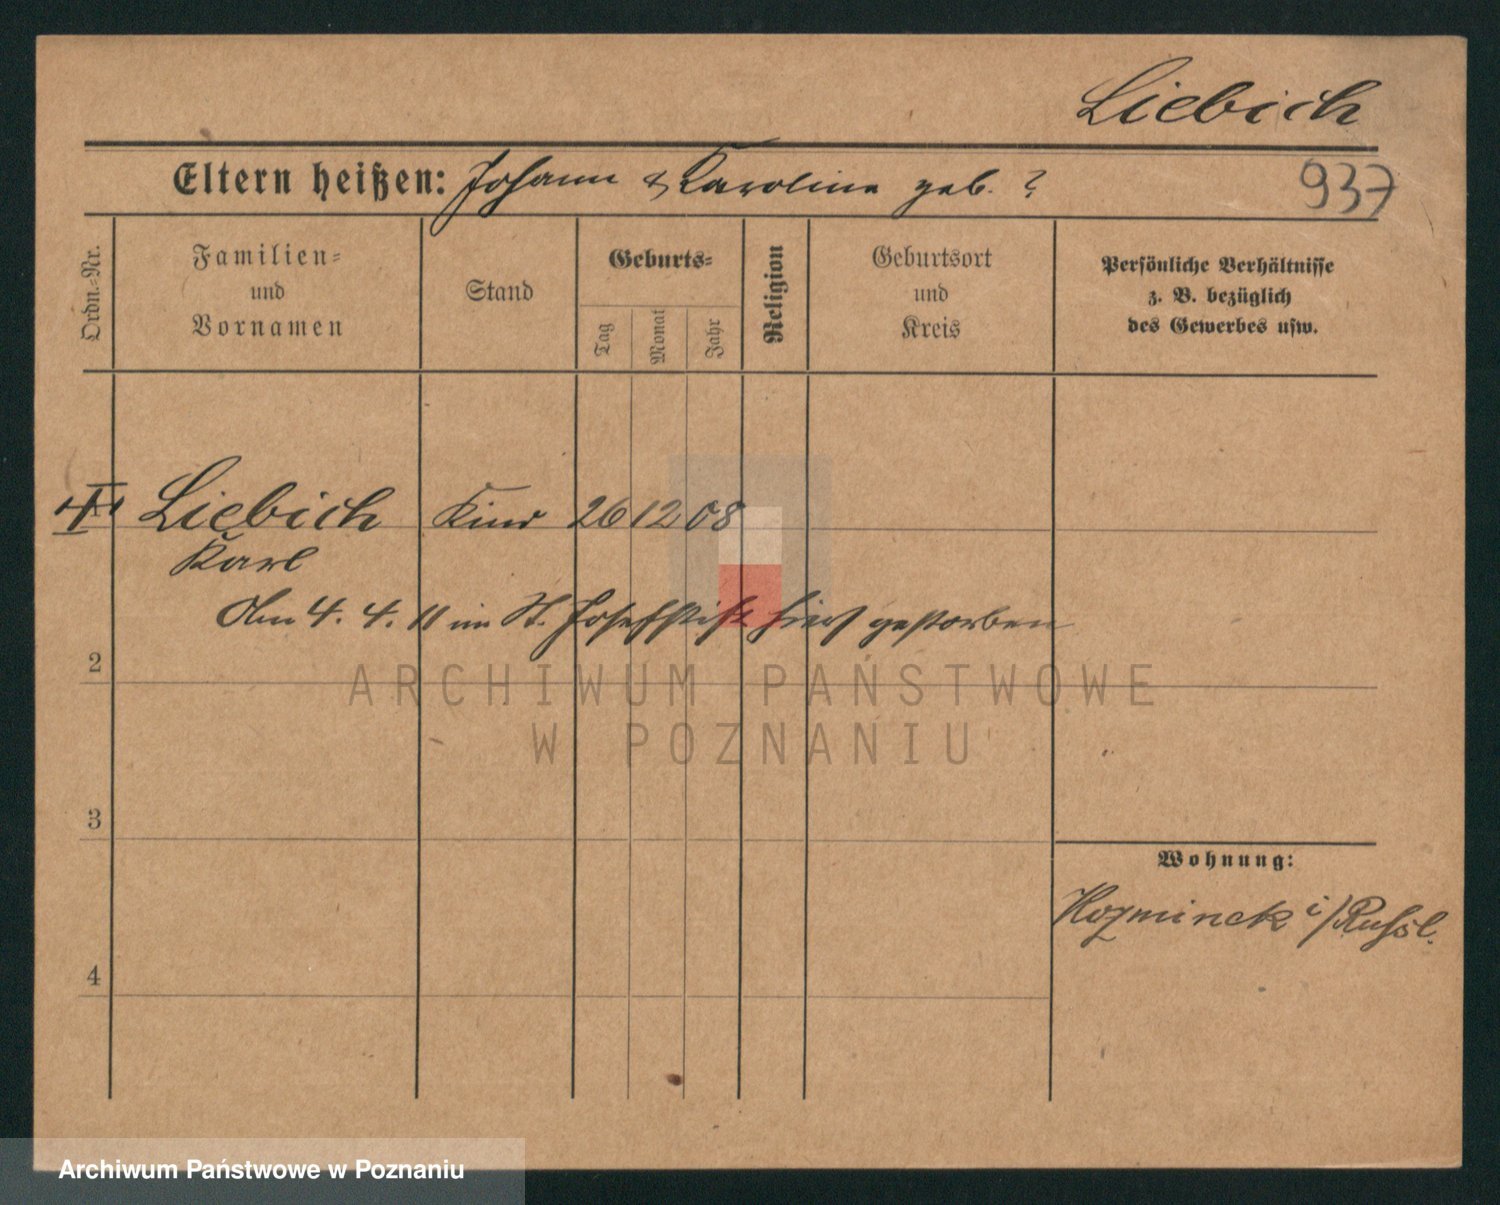 Liebich
Eltern heißen: Johann & Karoline geb. ?
937
Ordn.-Nr.
Familien-
und
Vornamen
Stand
Geburts-
Tag
Monat
Jahr
Religion
Geburtsort
und
Kreis
Persönliche Verhältnisse
z. B. bezüglich
des Gewerbes usw.
1 Liebich Kind 26 12 08
Karl
Am 4. 4. 11 im St. Josefstift hier gestorben
2
ARCHIWUM PAŃSTWOWE
W POZNANIU
3
Wohnung:
i/Russl.
4
Archiwum Państwowe w Poznaniu